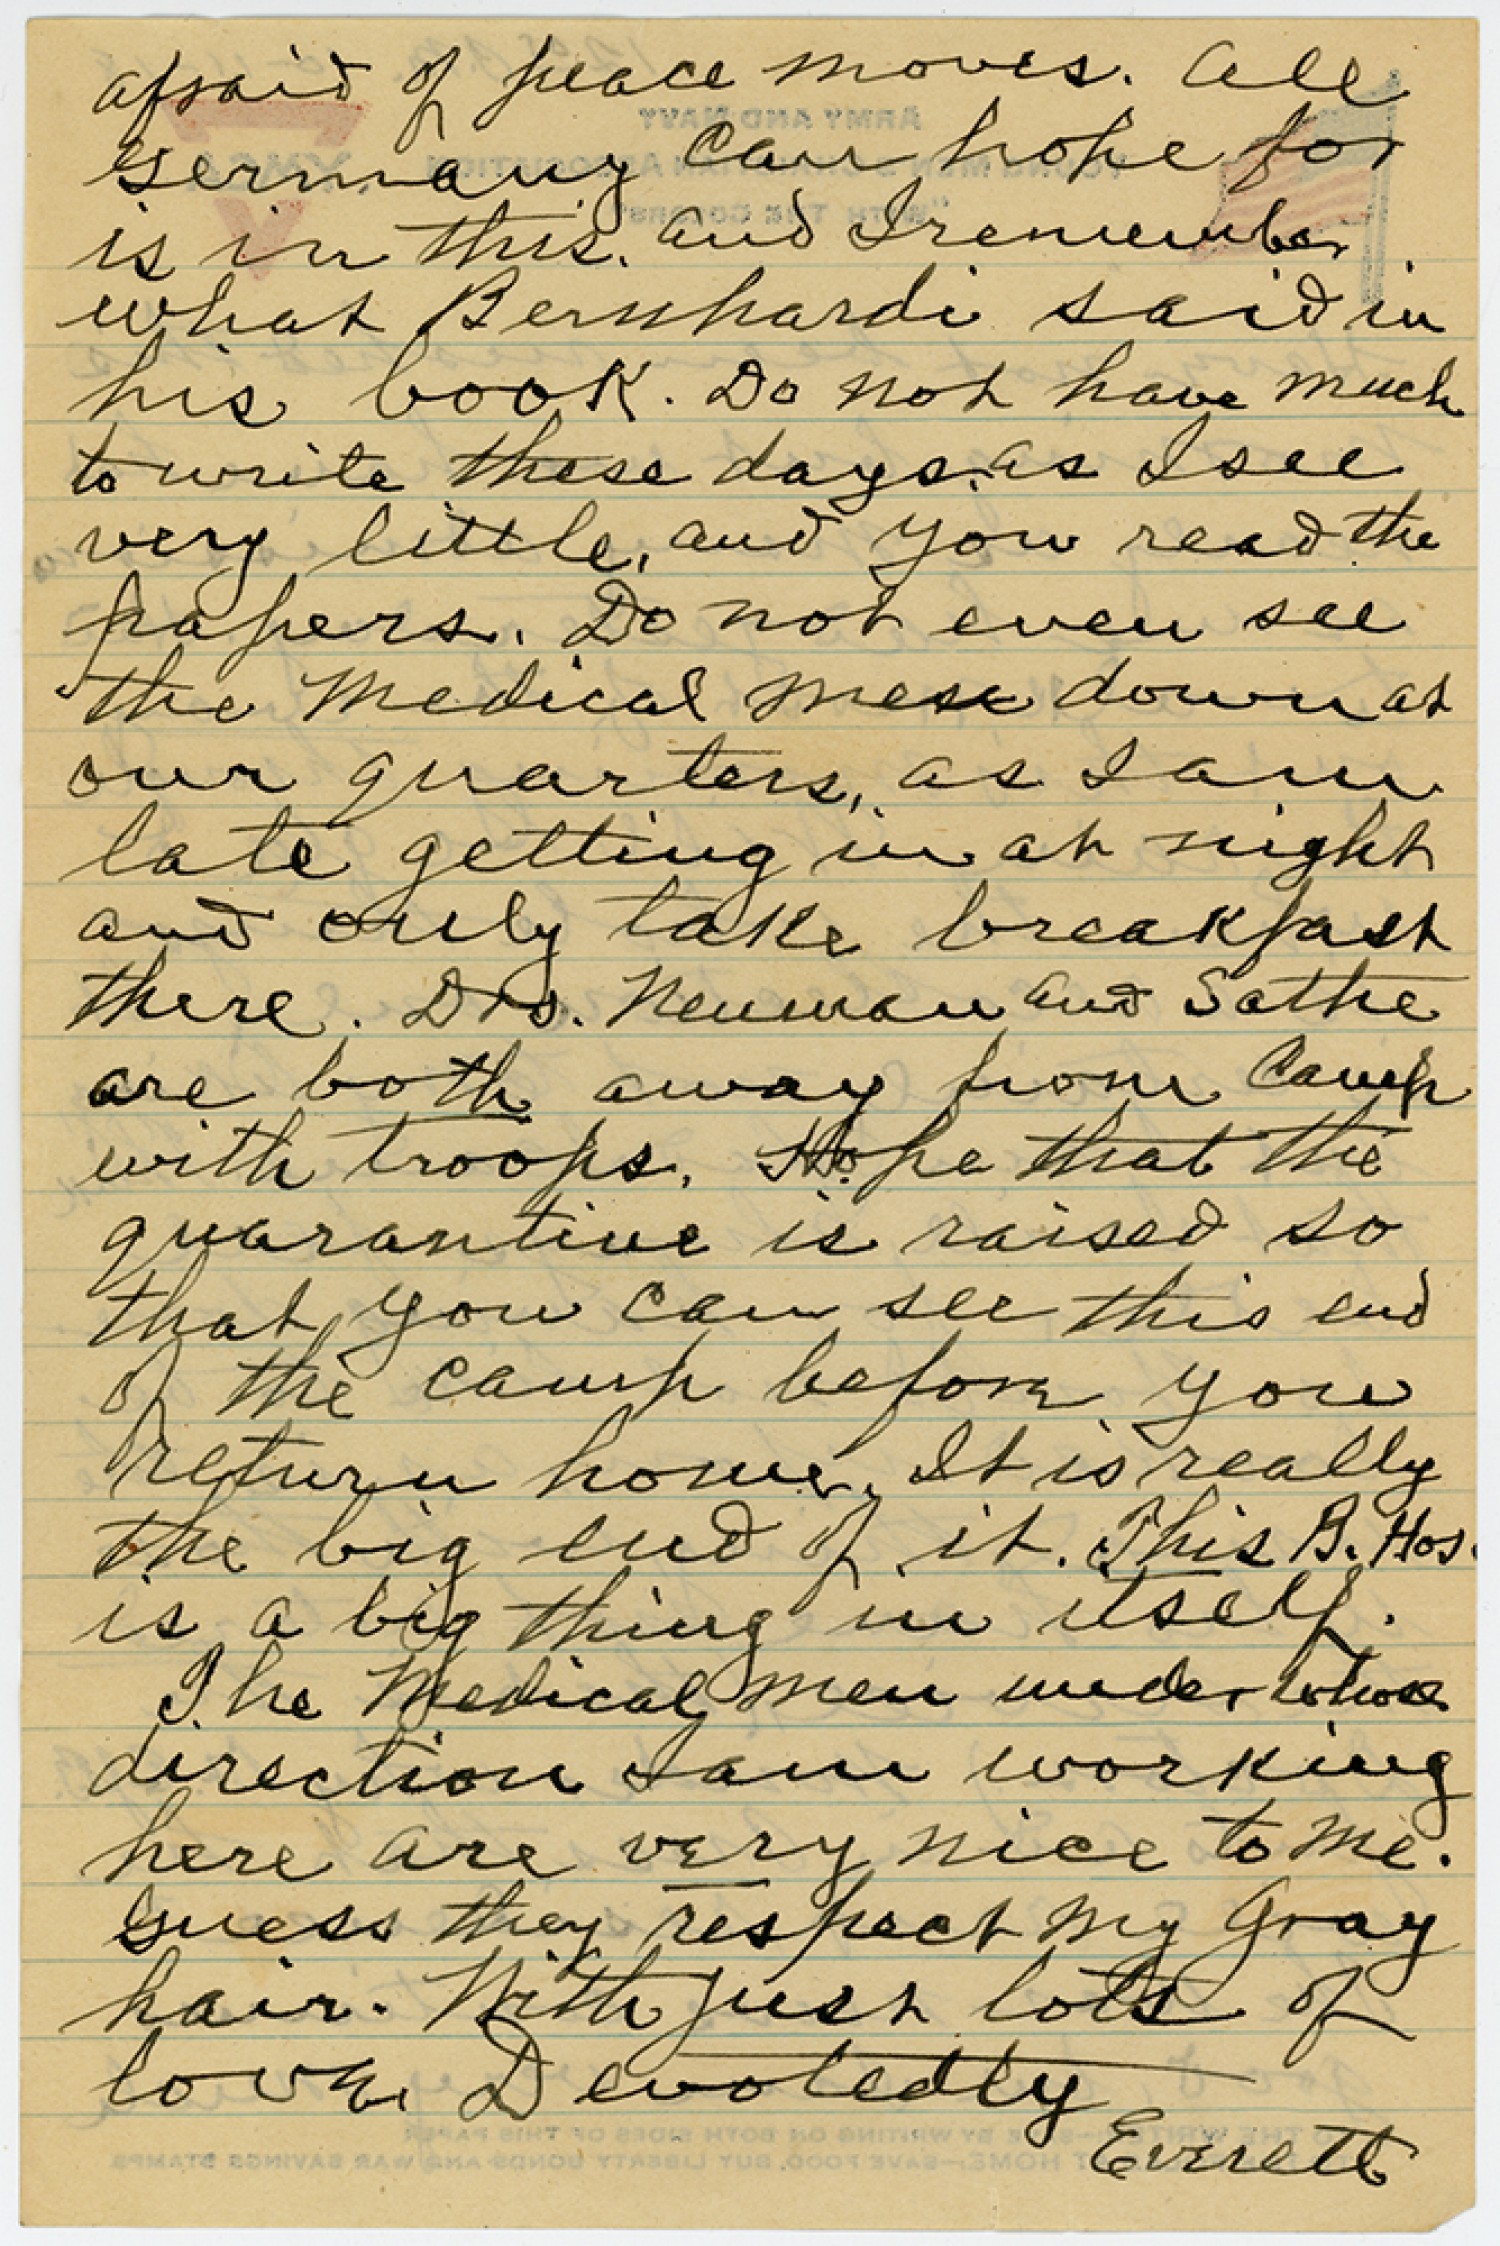 afraid of peace moves. All
Germany can hope for
is in this. and I remember
what Bernhardi said in
his book. Do not have much
to write these days, as I see
very little, and you read the
papers. Do not even see
the Medical men down at
our quarters, as I am
late getting in at night
and only take breakfast
there. Drs. Neuman and Sathe
are both away from Camp
with troops. Hope that the
quarantine is raised so
that you can see this end
of the camp before you
return home. It is really
the big end of it. This B. Hos.
is a big thing in itself.
The Medical men under whose
direction I am working
here are very nice to me.
Guess they respect my Gray
hair. With just lots of
love. Devotedly
Everett